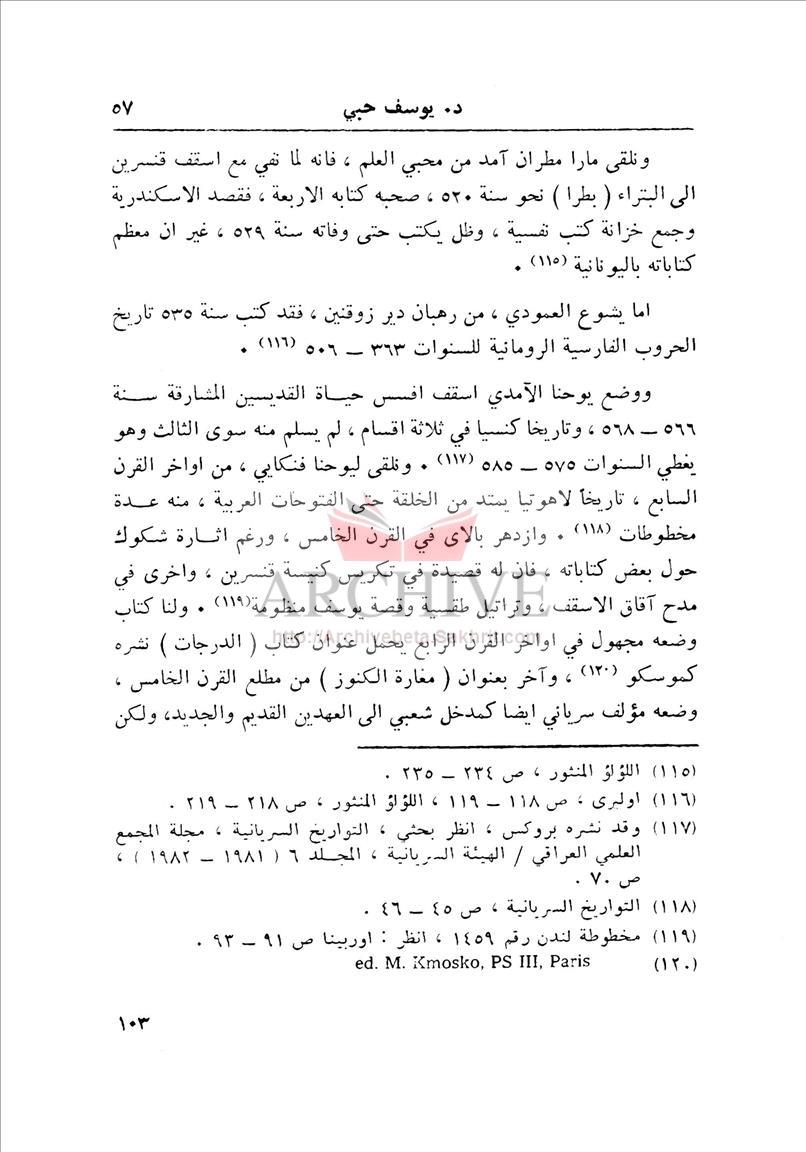 د. يوسف حبي
٥٧
ونلقى مارا مطران آمد من محبي العلم ، فانه لما نفي مع اسقف قنسرين
الى البتراء ( بطرا ) نحو سنة ٥٢٠ ، صحبه كتابه الاربعة ، فقصد الاسكندرية
وجمع خزانة كتب نفسية ، وظل يكتب حتى وفاته سنة ٥٢٩ ، غير ان معظم
كتاباته باليونانية (١١٥) .
اما يشوع العمودي ، من رهبان دير زوقنين ، فقد كتب سنة ٥٣٥ تاريخ
الحروب الفارسية الرومانية للسنوات ٣٦٣ – ٥٠٦ (١١٦) .
ووضع يوحنا الآمدي اسقف افسس حياة القديسين المشارقة سنة
٥٦٦ – ٥٦٨ ، وتاريخا كنسيا في ثلاثة اقسام ، لم يسلم منه سوى الثالث وهو
يغطي السنوات ٥٧٥ – ٥٨٥ (١١٧) . ونلقى ليوحنا فنكايي ، من اواخر القرن
السابع ، تاريخاً لاهوتيا يمتد من الخلقة حتى الفتوحات العربية ، منه عدة
مخطوطات (١١٨) . وازدهر بالاى في القرن الخامس ، ورغم اثارة شكوك
حول بعض كتاباته ، فان له قصيدة في تكريس كنيسة قنسرين ، واخرى في
مدح آقاق الاسقف ، وتراتيل طقسية وقصة يوسف منظومة(١١٩) . ولنا كتاب
وضعه مجهول في اواخر القرن الرابع يحمل عنوان كتاب ( الدرجات ) نشره
كموسكو (١٢٠) ، وآخر بعنوان ( مغارة الكنوز ) من مطلع القرن الخامس ،
وضعه مؤلف سرياني ايضا كمدخل شعبي الى العهدين القديم والجديد، ولكن
ARCHIVE
http://Archivebeta.Sakhrit.com
(١١٥) اللؤلؤ المنثور ، ص ٢٣٤ – ٢٣٥ .
(١١٦) اوليرى ، ص ١١٨ – ١١٩ ، اللؤلؤ المنثور ، ص ٢١٨ – ٢١٩ .
(١١٧) وقد نشره بروكس ، انظر بحثي ، التواريخ السريانية ، مجلة المجمع
العلمي العراقي / الهيئة السريانية ، المجلد ٦ ( ١٩٨١ – ١٩٨٢ ) ،
ص ٧٠ .
(١١٨) التواريخ السريانية ، ص ٤٥ – ٤٦ .
(١١٩) مخطوطة لندن رقم ١٤٥٩ ، انظر : اوربينا ص ٩١ – ٩٣ .
(١٢٠) ed. M. Kmosko, PS III, Paris
١٠٣